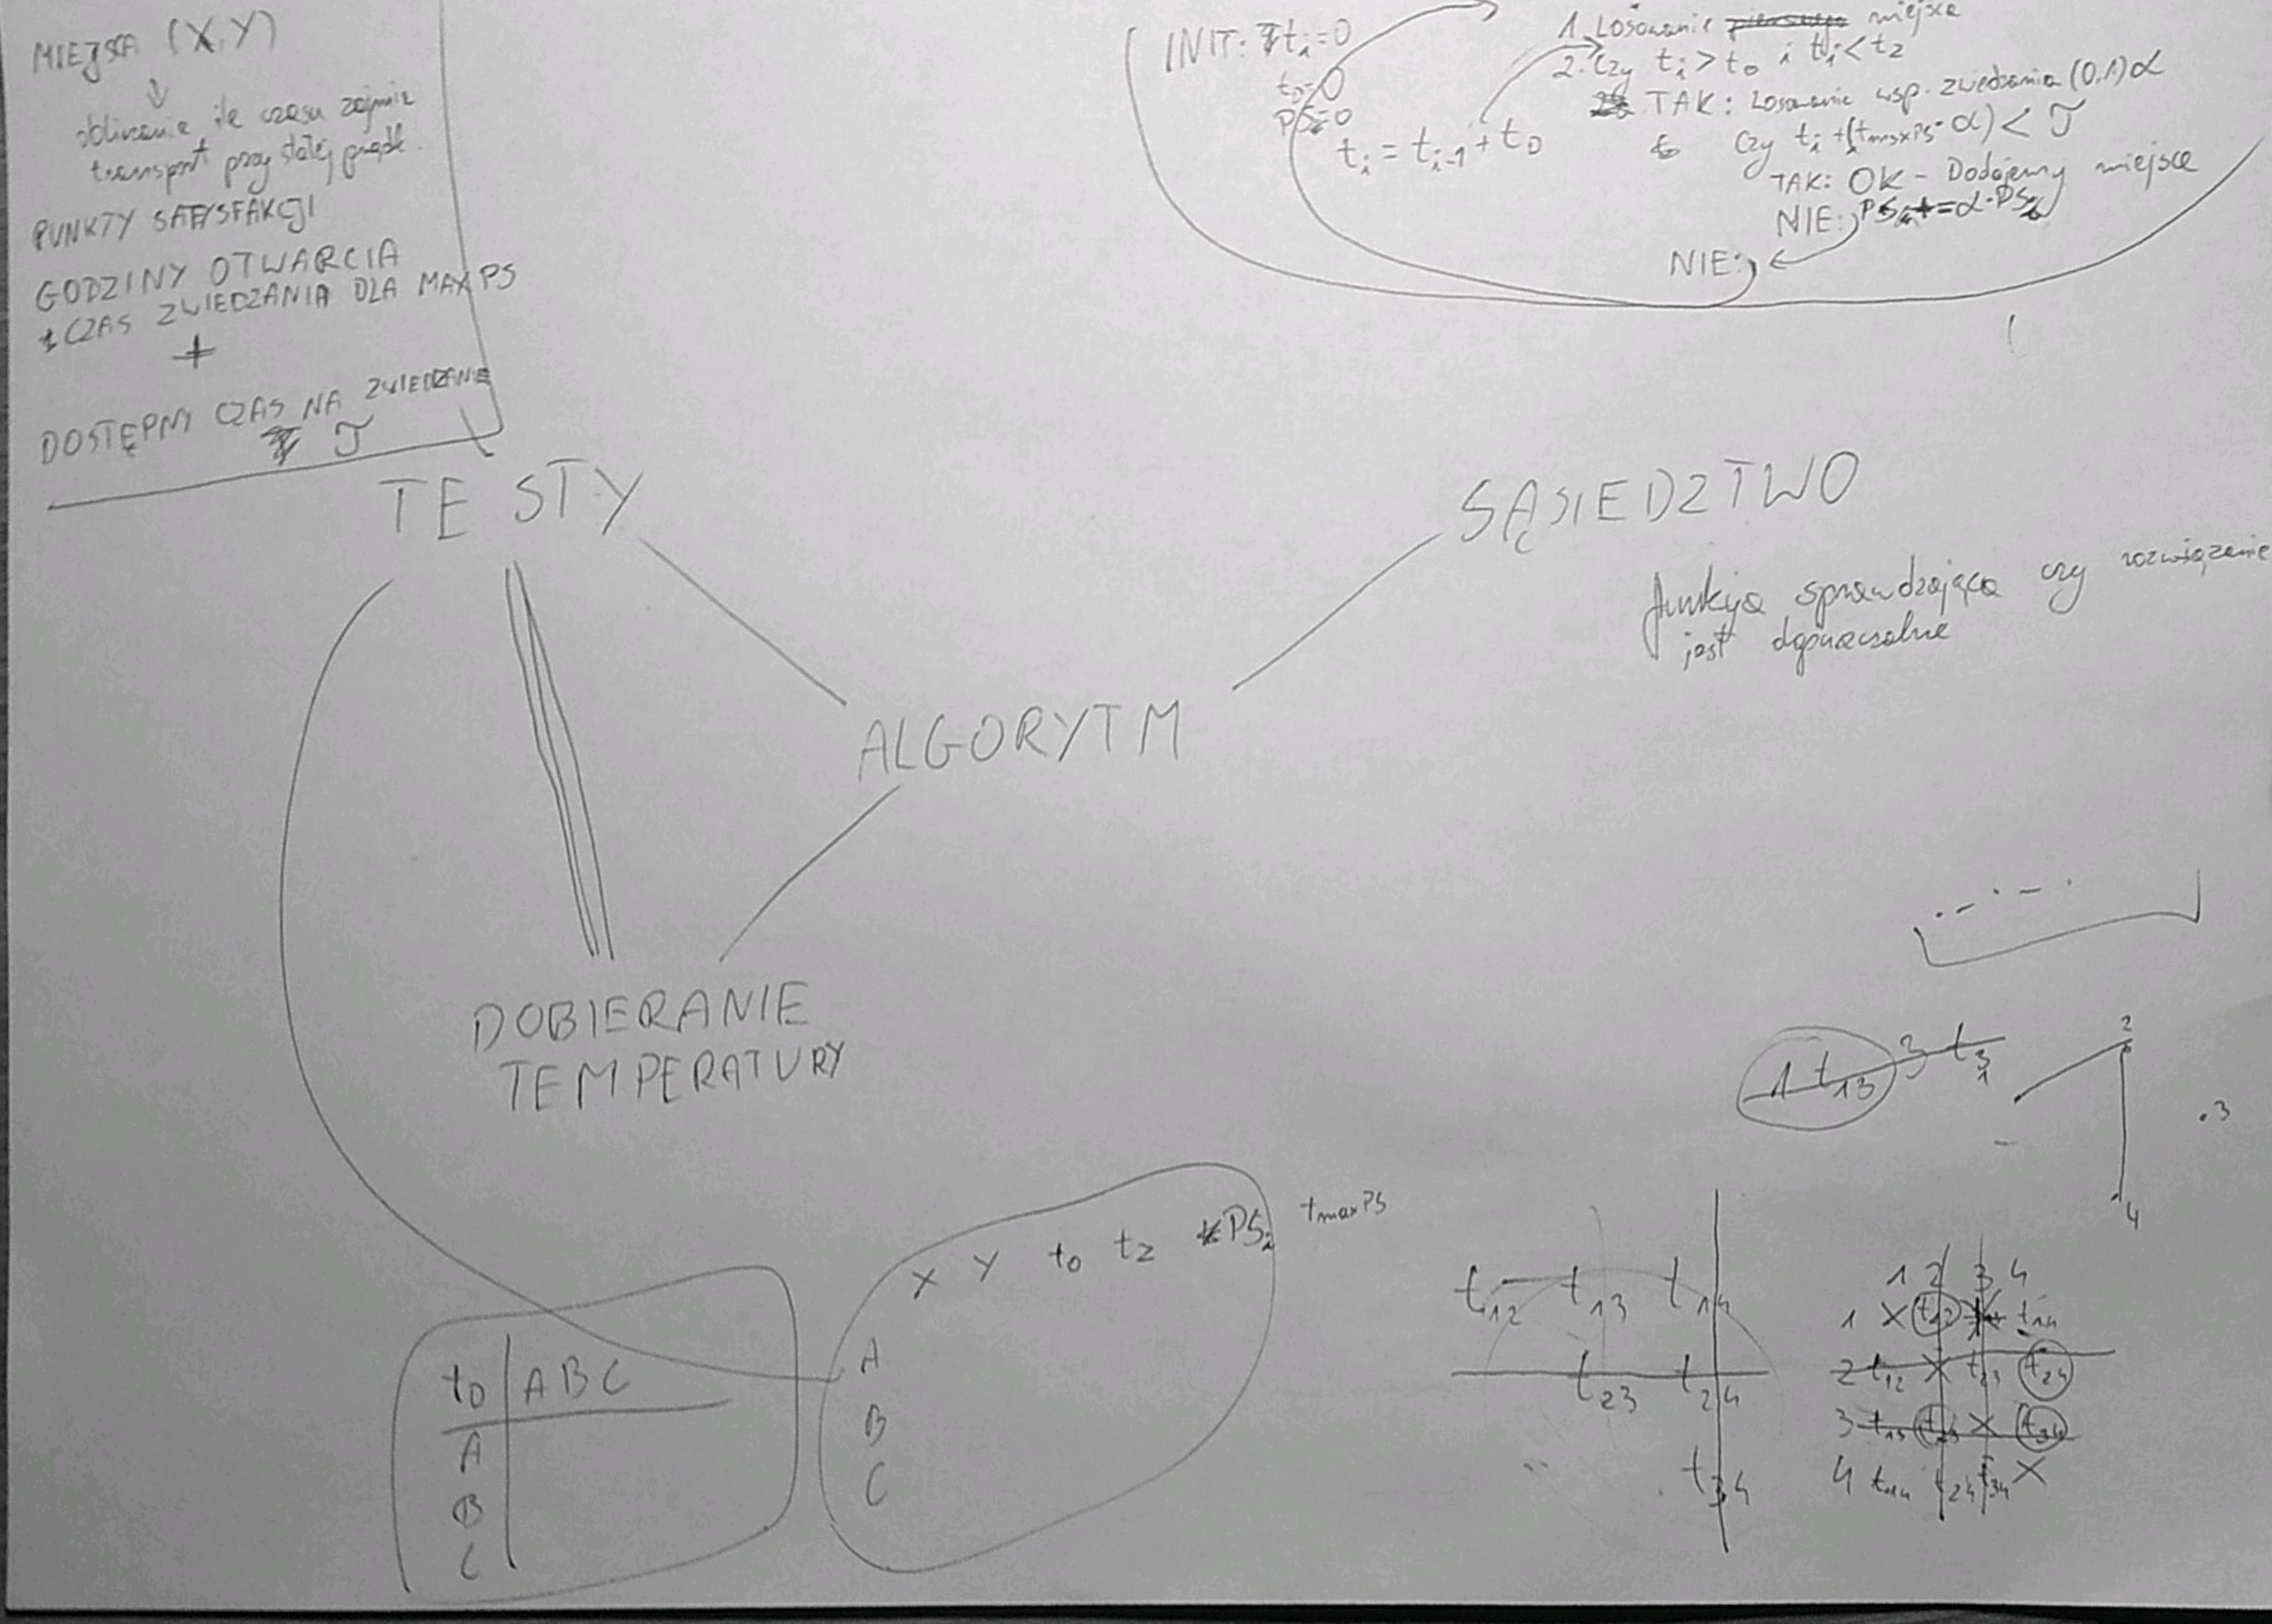 MIEJSCA (X,Y)
↓
obliczanie ile czasu zajmie
transport przy stałej prędk.
PUNKTY SATYSFAKCJI
GODZINY OTWARCIA
CZAS ZWIEDZANIA DLA MAX PS
+
DOSTĘPNY CZAS NA ZWIEDZANIE
T
INIT: t_i=0
t_D=0
PS=0
t_i = t_{i-1} + t_D
1. Losowanie pierwszego miejsca
2. Czy t_i > t_o i t_i < t_z
TAK: Losowanie wsp. zwiedzania (0,1) α
Czy t_i + (t_maxPS · α) < T
TAK: OK - Dodajemy miejsce
NIE: PS += α·PS
NIE:
TESTY
SĄSIEDZTWO
funkcja sprawdzająca czy rozwiązanie
jest dopuszczalne
ALGORYTM
DOBIERANIE
TEMPERATURY
1 t_13 3 t_31
2
.3
4
X Y t_o t_z PS_i t_maxPS
A
B
C
t_D A B C
A
B
C
t_12 t_13 t_14
t_23 t_24
t_34
1 2 3 4
1 X t_12 t_14
2 t_12 X t_23 t_24
3 t_13 t_23 X t_34
4 t_14 t_24 t_34 X